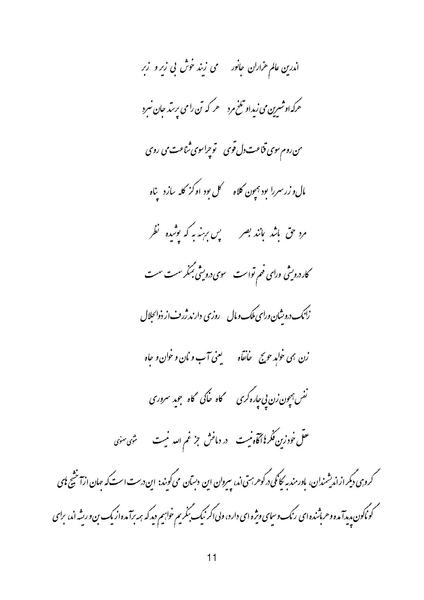 اندرین عالم هزاران جانور می زیند خوش بی زیر و زبر
هرکه او شیرین می زید او تلخ مرد هر که تن را می پرستد جان نبرد
من روم سوی قناعت دل قوی تو چرا سوی شناعت می روی
مال و زر سر را بود همچون کلاه کل بود او کز کله سازد پناه
مرد حق باشد بمانند بصر پس برهنه به که پوشیده نظر
کار درویشی ورای فهم تو است سوی درویشی بمنگر سست سست
زانک درویشان ورای ملک و مال روزی دارند ژرف از ذوالجلال
زن همی خواهد حویج خانقاه یعنی آب و نان و خوان و جاه
نفس همچون زن پی چاره گری گاه خاکی گاه جوید سروری
عقل خود زین فکرها آگاه نیست در دماغش جز غم الله نیست مثنوی معنوی
گروهی دیگر از اندیشمندان، باورمند به یگانگی در گوهر هستی اند، پیروان این دبستان می گویند: این درست است که جهان از آمیختگی های
گوناگون پدید آمده و هر باشنده ای رنگ و سیمای ویژه ای دارد، ولی اگر نیک بنگریم خواهیم دید که همه برآمده از یک بن و ریشه اند، برای
11